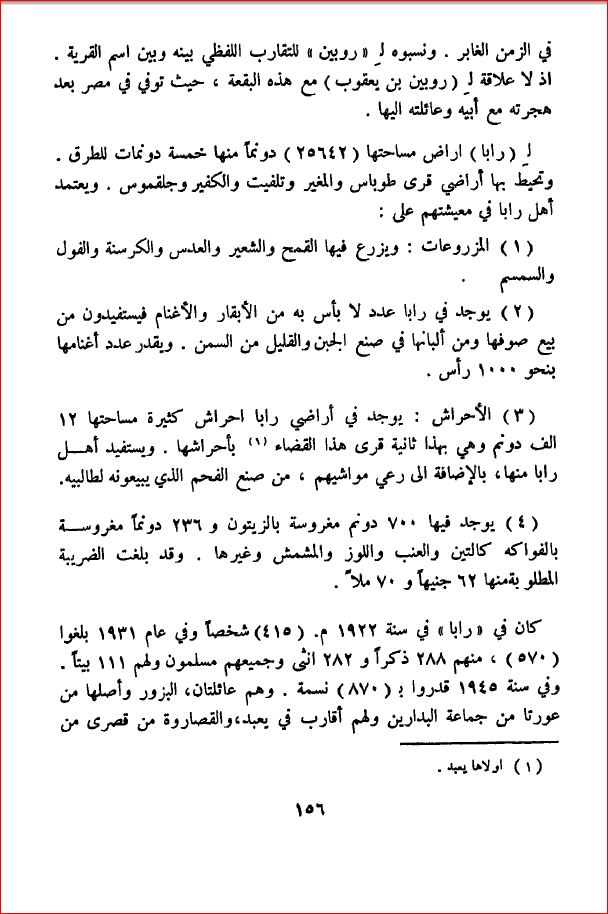 في الزمن الغابر . ونسبوه لـِ « روبين » للتقارب اللفظي بينه وبين اسم القرية .
اذ لا علاقة لـِ ( روبين بن يعقوب ) مع هذه البقعة ، حيث توفي في مصر بعد
هجرته مع أبيه وعائلته اليها .
لـِ ( رابا ) اراض مساحتها ( ٢٥٦٤٢ ) دونماً منها خمسة دونمات للطرق .
وتحيط بها أراضي قرى طوباس والمغير وتلفيت والكفير وجلقموس . ويعتمد
أهل رابا في معيشتهم على :
( ١ ) المزروعات : ويزرع فيها القمح والشعير والعدس والكرسنة والفول
والسمسم .
( ٢ ) يوجد في رابا عدد لا بأس به من الأبقار والأغنام فيستفيدون من
بيع صوفها ومن ألبانها في صنع الجبن والقليل من السمن . ويقدر عدد أغنامها
بنحو ١٠٠٠ رأس .
( ٣ ) الأحراش : يوجد في أراضي رابا احراش كثيرة مساحتها ١٢
الف دونم وهي بهذا ثانية قرى هذا القضاء (١) بأحراشها . ويستفيد أهــل
رابا منها، بالإضافة الى رعي مواشيهم ، من صنع الفحم الذي يبيعونه لطالبيه.
( ٤ ) يوجد فيها ٧٠٠ دونم مغروسة بالزيتون و ٢٣٦ دونماً مغروســة
بالفواكه كالتين والعنب واللوز والمشمش وغيرها . وقد بلغت الضريبة
المطلو بقمنها ٦٢ جنيهاً و ٧٠ ملاً .
كان في « رابا » في سنة ١٩٢٢ م. ( ٤١٥ ) شخصاً وفي عام ١٩٣١ بلغوا
( ٥٧٠ ) ، منهم ٢٨٨ ذكراً و ٢٨٢ انثى وجميعهم مسلمون ولهم ١١١ بيتاً .
وفي سنة ١٩٤٥ قدروا بـ ( ٨٧٠ ) نسمة . وهم عائلتان، البزور وأصلها من
عورتا من جماعة البدارين ولهم أقارب في يعبد،والقصاروة من قصرى من
( ١ ) اولاها يعبد .
١٥٦